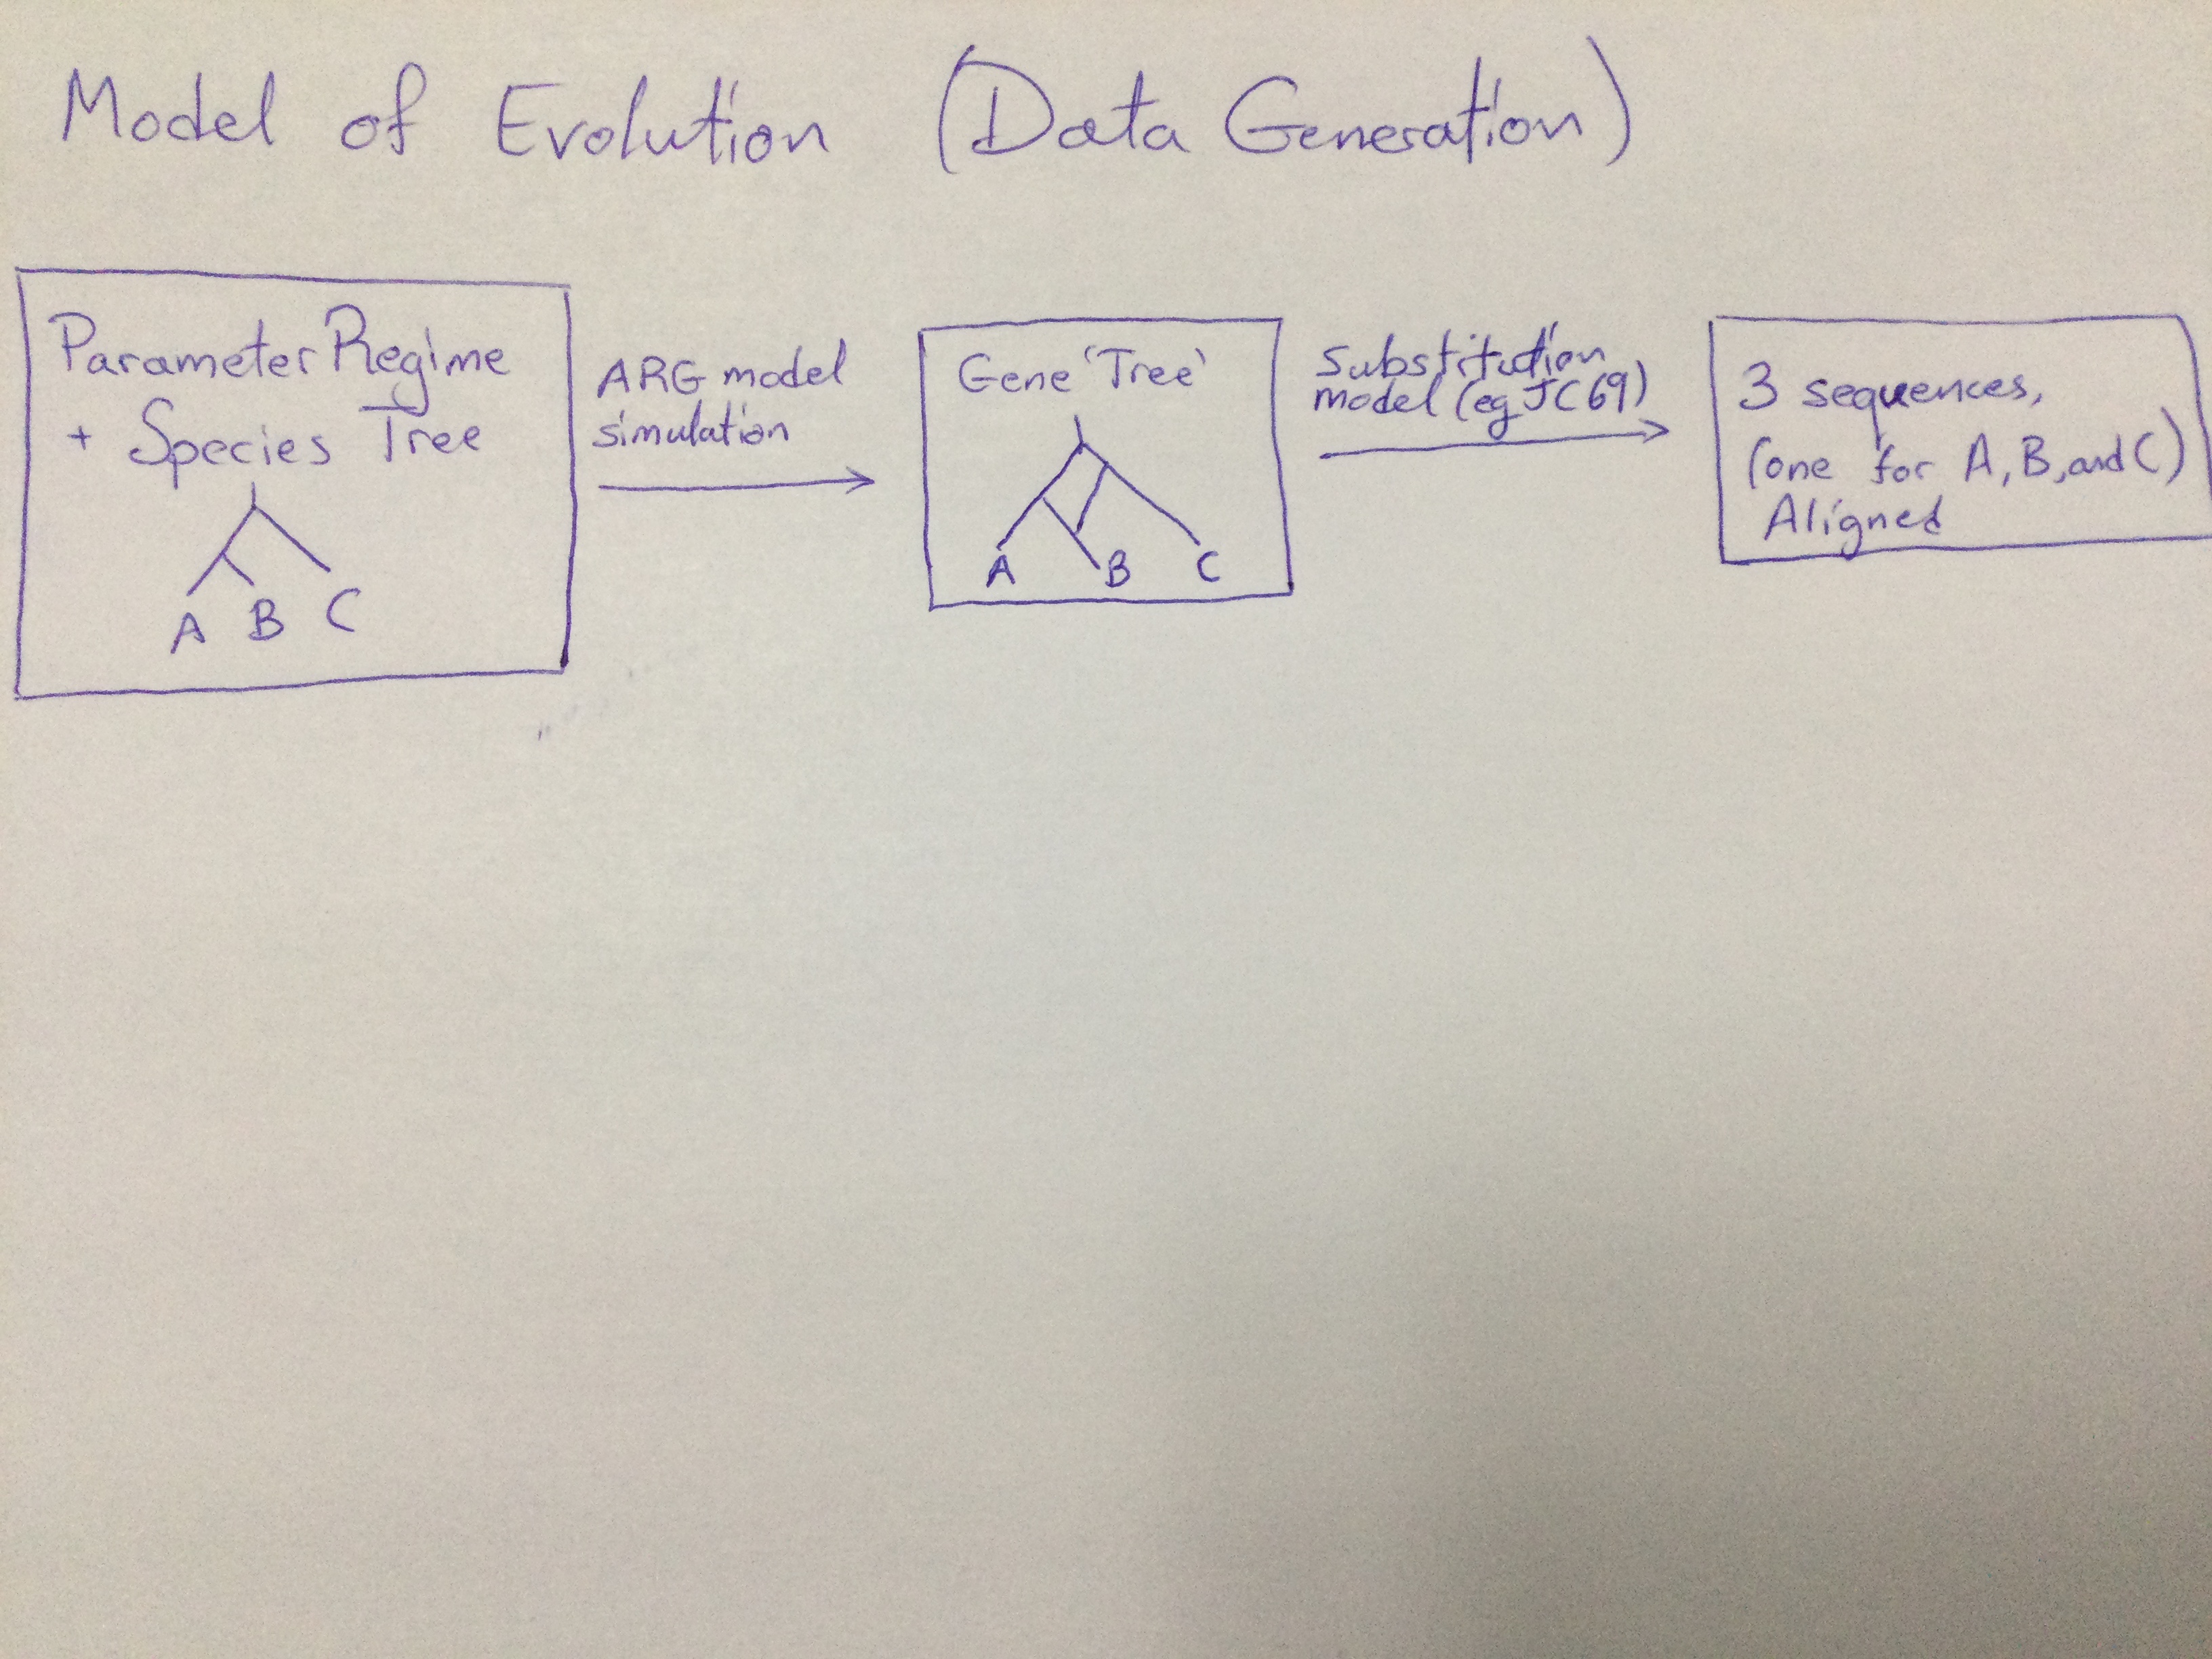 Model of Evolution (Data Generation)
Parameter Regime
+ Species Tree
A B C
ARG model
simulation
Gene 'Tree'
A B C
Substitution
model (eg JC69)
3 sequences,
(one for A, B, and C)
Aligned